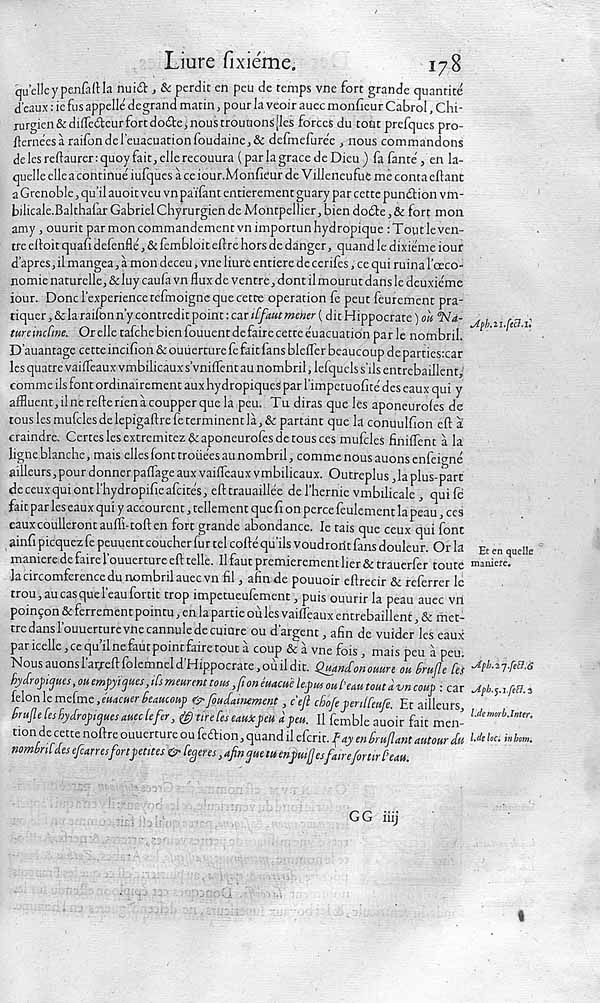 Liure ſixiéme. 178
qu'elle y penſaſt la nuict, & perdit en peu de temps vne fort grande quantité
d'eaux: ie fus appellé de grand matin, pour la veoir auec monſieur Cabrol, Chi-
rurgien & diſſecteur fort docte, nous trouuons les forces du tout preſques pro-
ſternées à raiſon de l'euacuation ſoudaine, & deſmeſurée, nous commandons
de les reſtaurer: quoy fait, elle recouura (par la grace de Dieu) ſa ſanté, en la-
quelle elle a continué iuſques à ce iour. Monſieur de Villeneufue me conta eſtant
a Grenoble, qu'il auoit veu vn païſant entierement guary par cette punction vm-
bilicale. Balthaſar Gabriel Chyrurgien de Montpellier, bien docte, & fort mon
amy, ouurit par mon commandement vn importun hydropique: Tout le ven-
tre eſtoit quaſi deſenflé, & ſembloit eſtre hors de danger, quand le dixiéme iour
d'apres, il mangea, à mon deceu, vne liure entiere de ceriſes, ce qui ruina l'œco-
nomie naturelle, & luy cauſa vn flux de ventre, dont il mourut dans le deuxiéme
iour. Donc l'experience teſmoigne que cette operation ſe peut ſeurement pra-
tiquer, & la raiſon n'y contredit point: car il faut mener (dit Hippocrate) où Na-
ture incline. Or elle taſche bien ſouuent de faire cette éuacuation par le nombril.
Aph. 21. ſect. 1.
D'auantage cette inciſion & ouuerture ſe fait ſans bleſſer beaucoup de parties: car
les quatre vaiſſeaux vmbilicaux s'vniſſent au nombril, leſquels s'ils entrebaillent,
comme ils font ordinairement aux hydropiques par l'impetuoſité des eaux qui y
affluent, il ne reſte rien à coupper que la peau. Tu diras que les aponeuroſes de
tous les muſcles de lepigaſtre ſe terminent là, & partant que la conuulſion eſt à
craindre. Certes les extremitez & aponeuroſes de tous ces muſcles finiſſent à la
ligne blanche, mais elles ſont troüées au nombril, comme nous auons enſeigné
ailleurs, pour donner paſſage aux vaiſſeaux vmbilicaux. Outreplus, la plus-part
de ceux qui ont l'hydropiſie aſcités, eſt trauaillée de l'hernie vmbilicale, qui ſe
fait par les eaux qui y accourent, tellement que ſi on perce ſeulement la peau, ces
eaux coulleront auſſi-toſt en fort grande abondance. Ie tais que ceux qui ſont
ainſi picquez ſe peuuent coucher ſur tel coſté qu'ils voudront ſans douleur. Or la
maniere de faire l'ouuerture eſt telle. Il faut premierement lier & trauerſer toute
Et en quelle
maniere.
la circomference du nombril auec vn fil, afin de pouuoir eſtrecir & reſerrer le
trou, au cas que l'eau ſortit trop impetueuſement, puis ouurir la peau auec vn
poinçon & ferrement pointu, en la partie où les vaiſſeaux entrebaillent, & met-
tre dans l'ouuerture vne cannule de cuiure ou d'argent, afin de vuider les eaux
par icelle, ce qu'il ne faut point faire tout à coup & à vne fois, mais peu à peu.
Nous auons l'arreſt ſolemnel d'Hippocrate, où il dit. Quand on ouure ou bruſle les
Aph. 27. ſect. 6
hydropiques, ou empyiques, ils meurent tous, ſi on éuacuë le pus ou l'eau tout à vn coup: car
ſelon le meſme, éuacuer beaucoup & ſoudainement, c'eſt choſe perilleuſe. Et ailleurs,
Aph. 51. ſect. 2
bruſle les hydropiques auec le fer, & tire les eaux peu à peu. Il ſemble auoir fait men-
l. de morb. Inter.
tion de cette noſtre ouuerture ou ſection, quand il eſcrit. Fay en bruſlant autour du
l. de loc. in hom.
nombril des eſcarres fort petites & legeres, afin que tu en puiſſes faire ſortir l'eau.
GG iiij